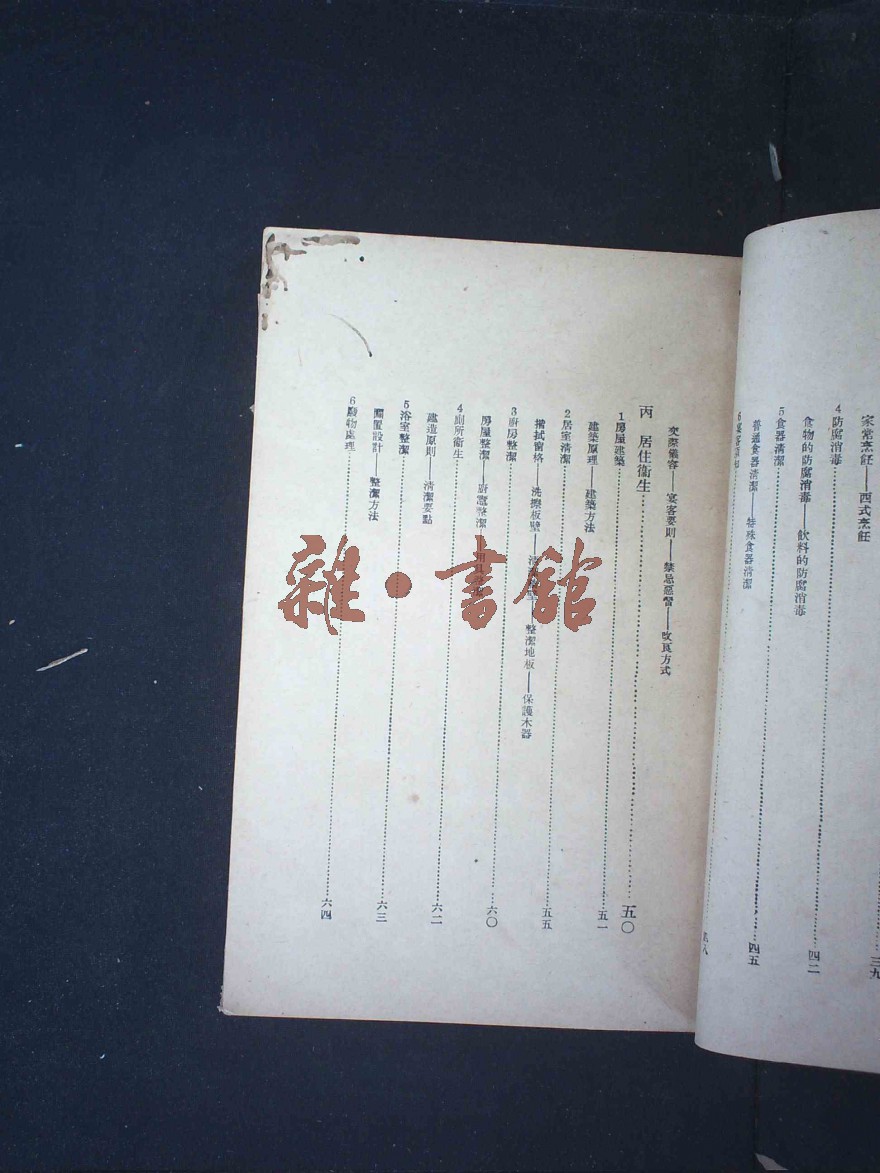 家常烹飪——西式烹飪
三九
4防腐消毒
四二
食物的防腐消毒——飲料的防腐消毒
5食器清潔
四五
普通食器清潔——特殊食器清潔
6
交際儀容——宴客要則——禁忌惡習——改良方式
丙 居住衞生
五〇
1房屋建築
五一
建築原理——建築方法
2居室清潔
五五
揩拭窗格——洗擦板壁——整潔地板——保護木器
3廚房整潔
六〇
房屋整潔——廚竈整潔
4廁所衞生
六二
建造原則——清潔要點
5浴室整潔
六三
佈置設計——整潔方法
6廢物處理
六四
雜·書館